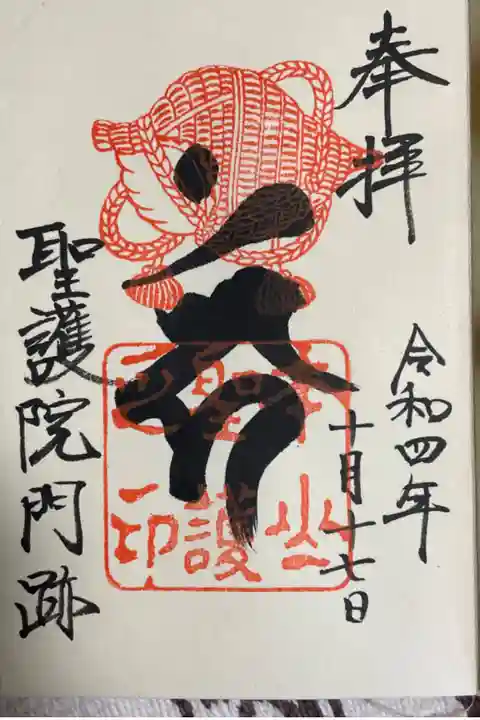 奉拝
令和四年
十月十七日
本山
聖護
之印
聖護院門跡